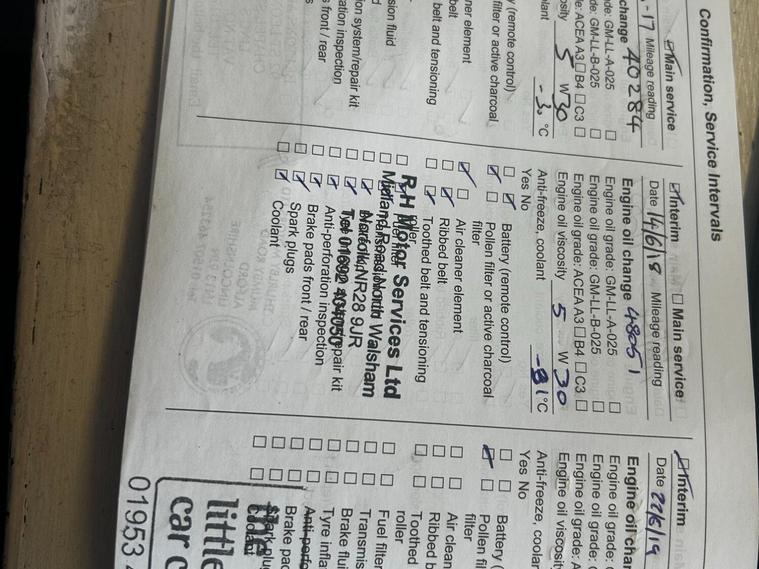 Confirmation, Service Intervals
Main service
-17 Mileage reading
change 40284
ade: GM-LL-A-025
de: GM-LL-B-025
e: ACEA A3 B4 C3
osity 5 W 30
olant °C
y (remote control)
filter or active charcoal
ner element
belt
belt and tensioning
sion fluid
on system/repair kit
ation inspection
s front / rear
Interim Main service
Date 14/6/18 Mileage reading
Engine oil change 48051
Engine oil grade: GM-LL-A-025
Engine oil grade: GM-LL-B-025
Engine oil grade: ACEA A3 B4 C3
Engine oil Viscosity 5 W 30
Anti-freeze, coolant °C
Yes No
Battery (remote control)
Pollen filter or active charcoal
filter
Air cleaner element
Ribbed belt
Toothed belt and tensioning
roller
R H Motor Services Ltd
Midland Road North Walsham
Norfolk NR28 9JR
Tel 01692 404050
repair kit
Anti-perforation inspection
Brake pads front / rear
Spark plugs
Coolant
Interim
Date 22/5/19
Engine oil chan
Engine oil grade: G
Engine oil grade: G
Engine oil grade: A
Engine oil viscosity
Anti-freeze, coolan
Yes No
Battery (
Pollen fil
filter
Air clean
Ribbed b
Toothed
roller
Fuel filter
Transmis
Brake flui
Tyre infla
Anti-perfo
Brake pad
Spark plu
Coolant
the
little
car c
01953 4